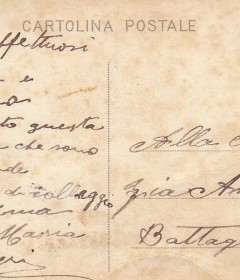 CARTOLINA POSTALE
ffettuosi
e
to questa
che sono
de
di collaggio
ma
Maria
Alla
Zia An
Battag